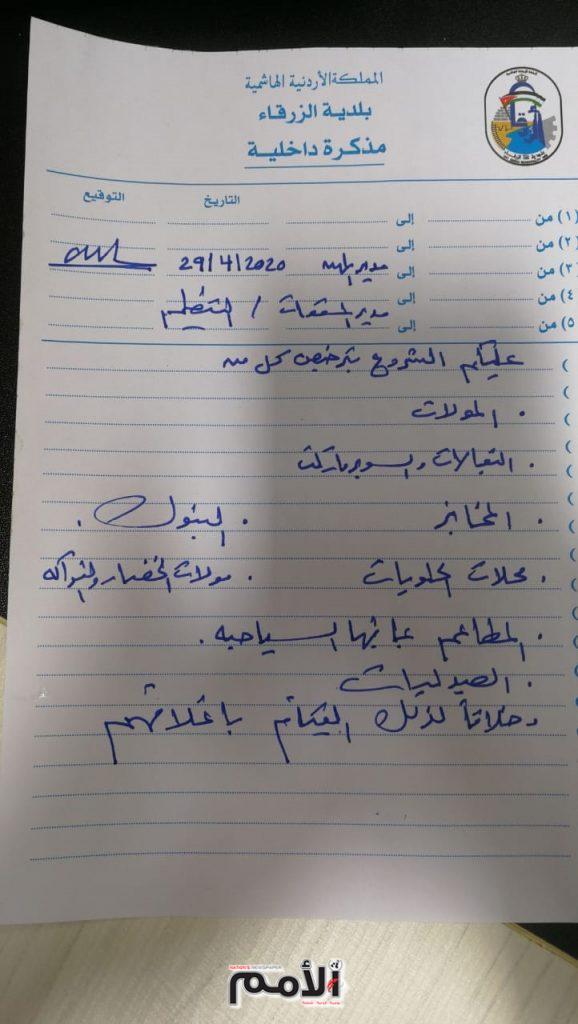 المملكة الأردنية الهاشمية
بلدية الزرقاء
مذكرة داخلية
التاريخ التوقيع
(١) من إلى
(٢) من إلى
(٣) من إلى مدير المهن 29/4/2020
(٤) من إلى
(٥) من إلى مدير / التنظيم
عليكم الشروع بترخيص كل من
. المولات
. البقالات والسوبرماركت
. المخابز . البنوك .
. محلات الحلويات . مولات الخضار والفواكه
. المطاعم بما فيها السياحيه .
. الصيدليات
وخلافاً لذلك القيام باغلاقهم
NATION'S NEWSPAPER
الأمم